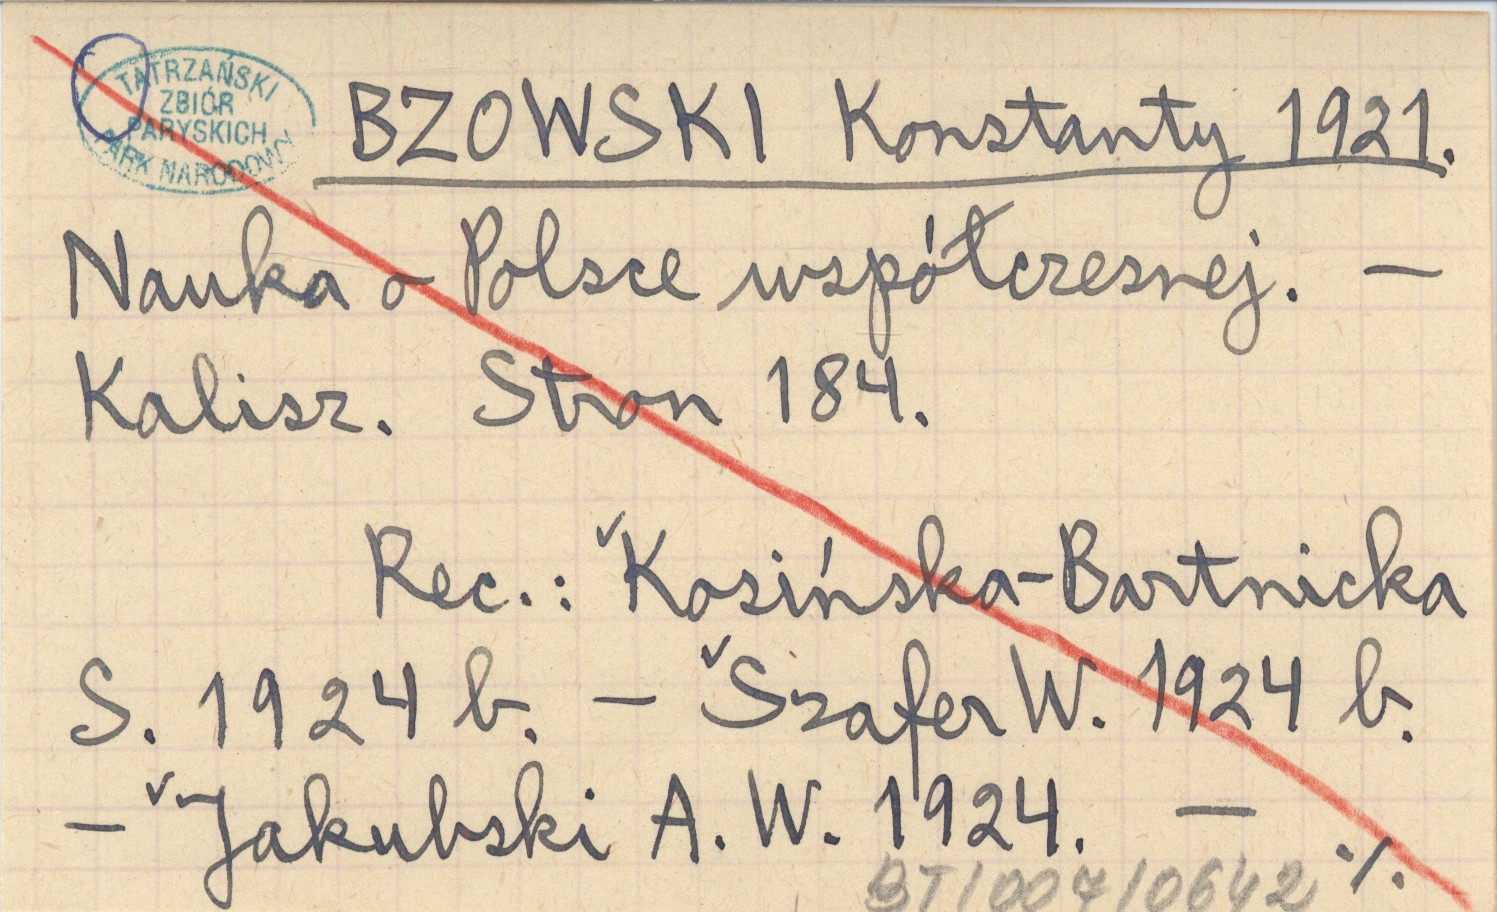 TATRZAŃSKI
ZBIÓR
PARYSKICH
PARK NARODOWY
BZOWSKI Konstanty 1921.
Nauka o Polsce współczesnej. —
Kalisz. Stron 184.
Rec.: ˇKosińska-Bartnicka
S. 1924 b. — ˇSzafer W. 1924 b.
— ˇJakubski A. W. 1924. —
·/.
BT/007/0642